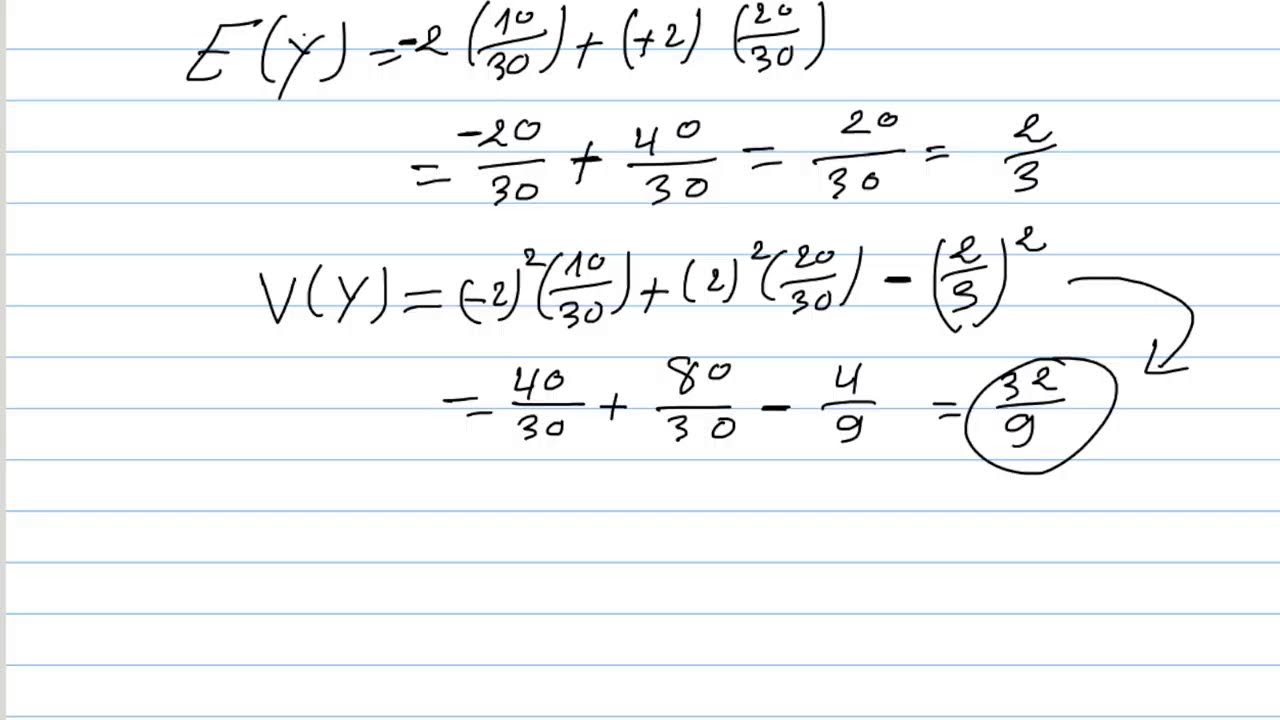 E(Y) = -2 (10/30) + (+2) (20/30)
= -20/30 + 40/30 = 20/30 = 2/3
V(Y) = (-2)² (10/30) + (2)² (20/30) - (2/3)²
= 40/30 + 80/30 - 4/9 = 32/9